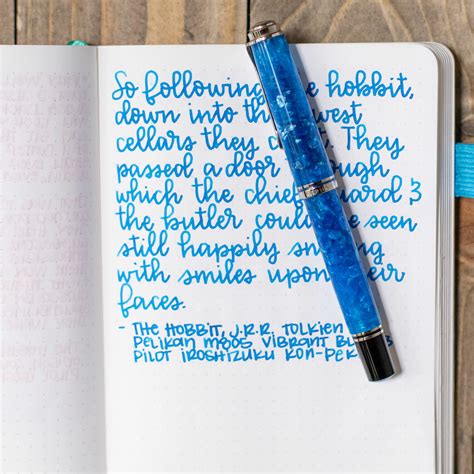 So following the hobbit,
down into the lowest
cellars they They
passed a door through
which the chief guard &
the butler could be seen
still happily
with smiles upon their
faces.
- The Hobbit, J.R.R. Tolkien
Pelikan M805 Vibrant Blue
Pilot Iroshizuku Kon-Peki